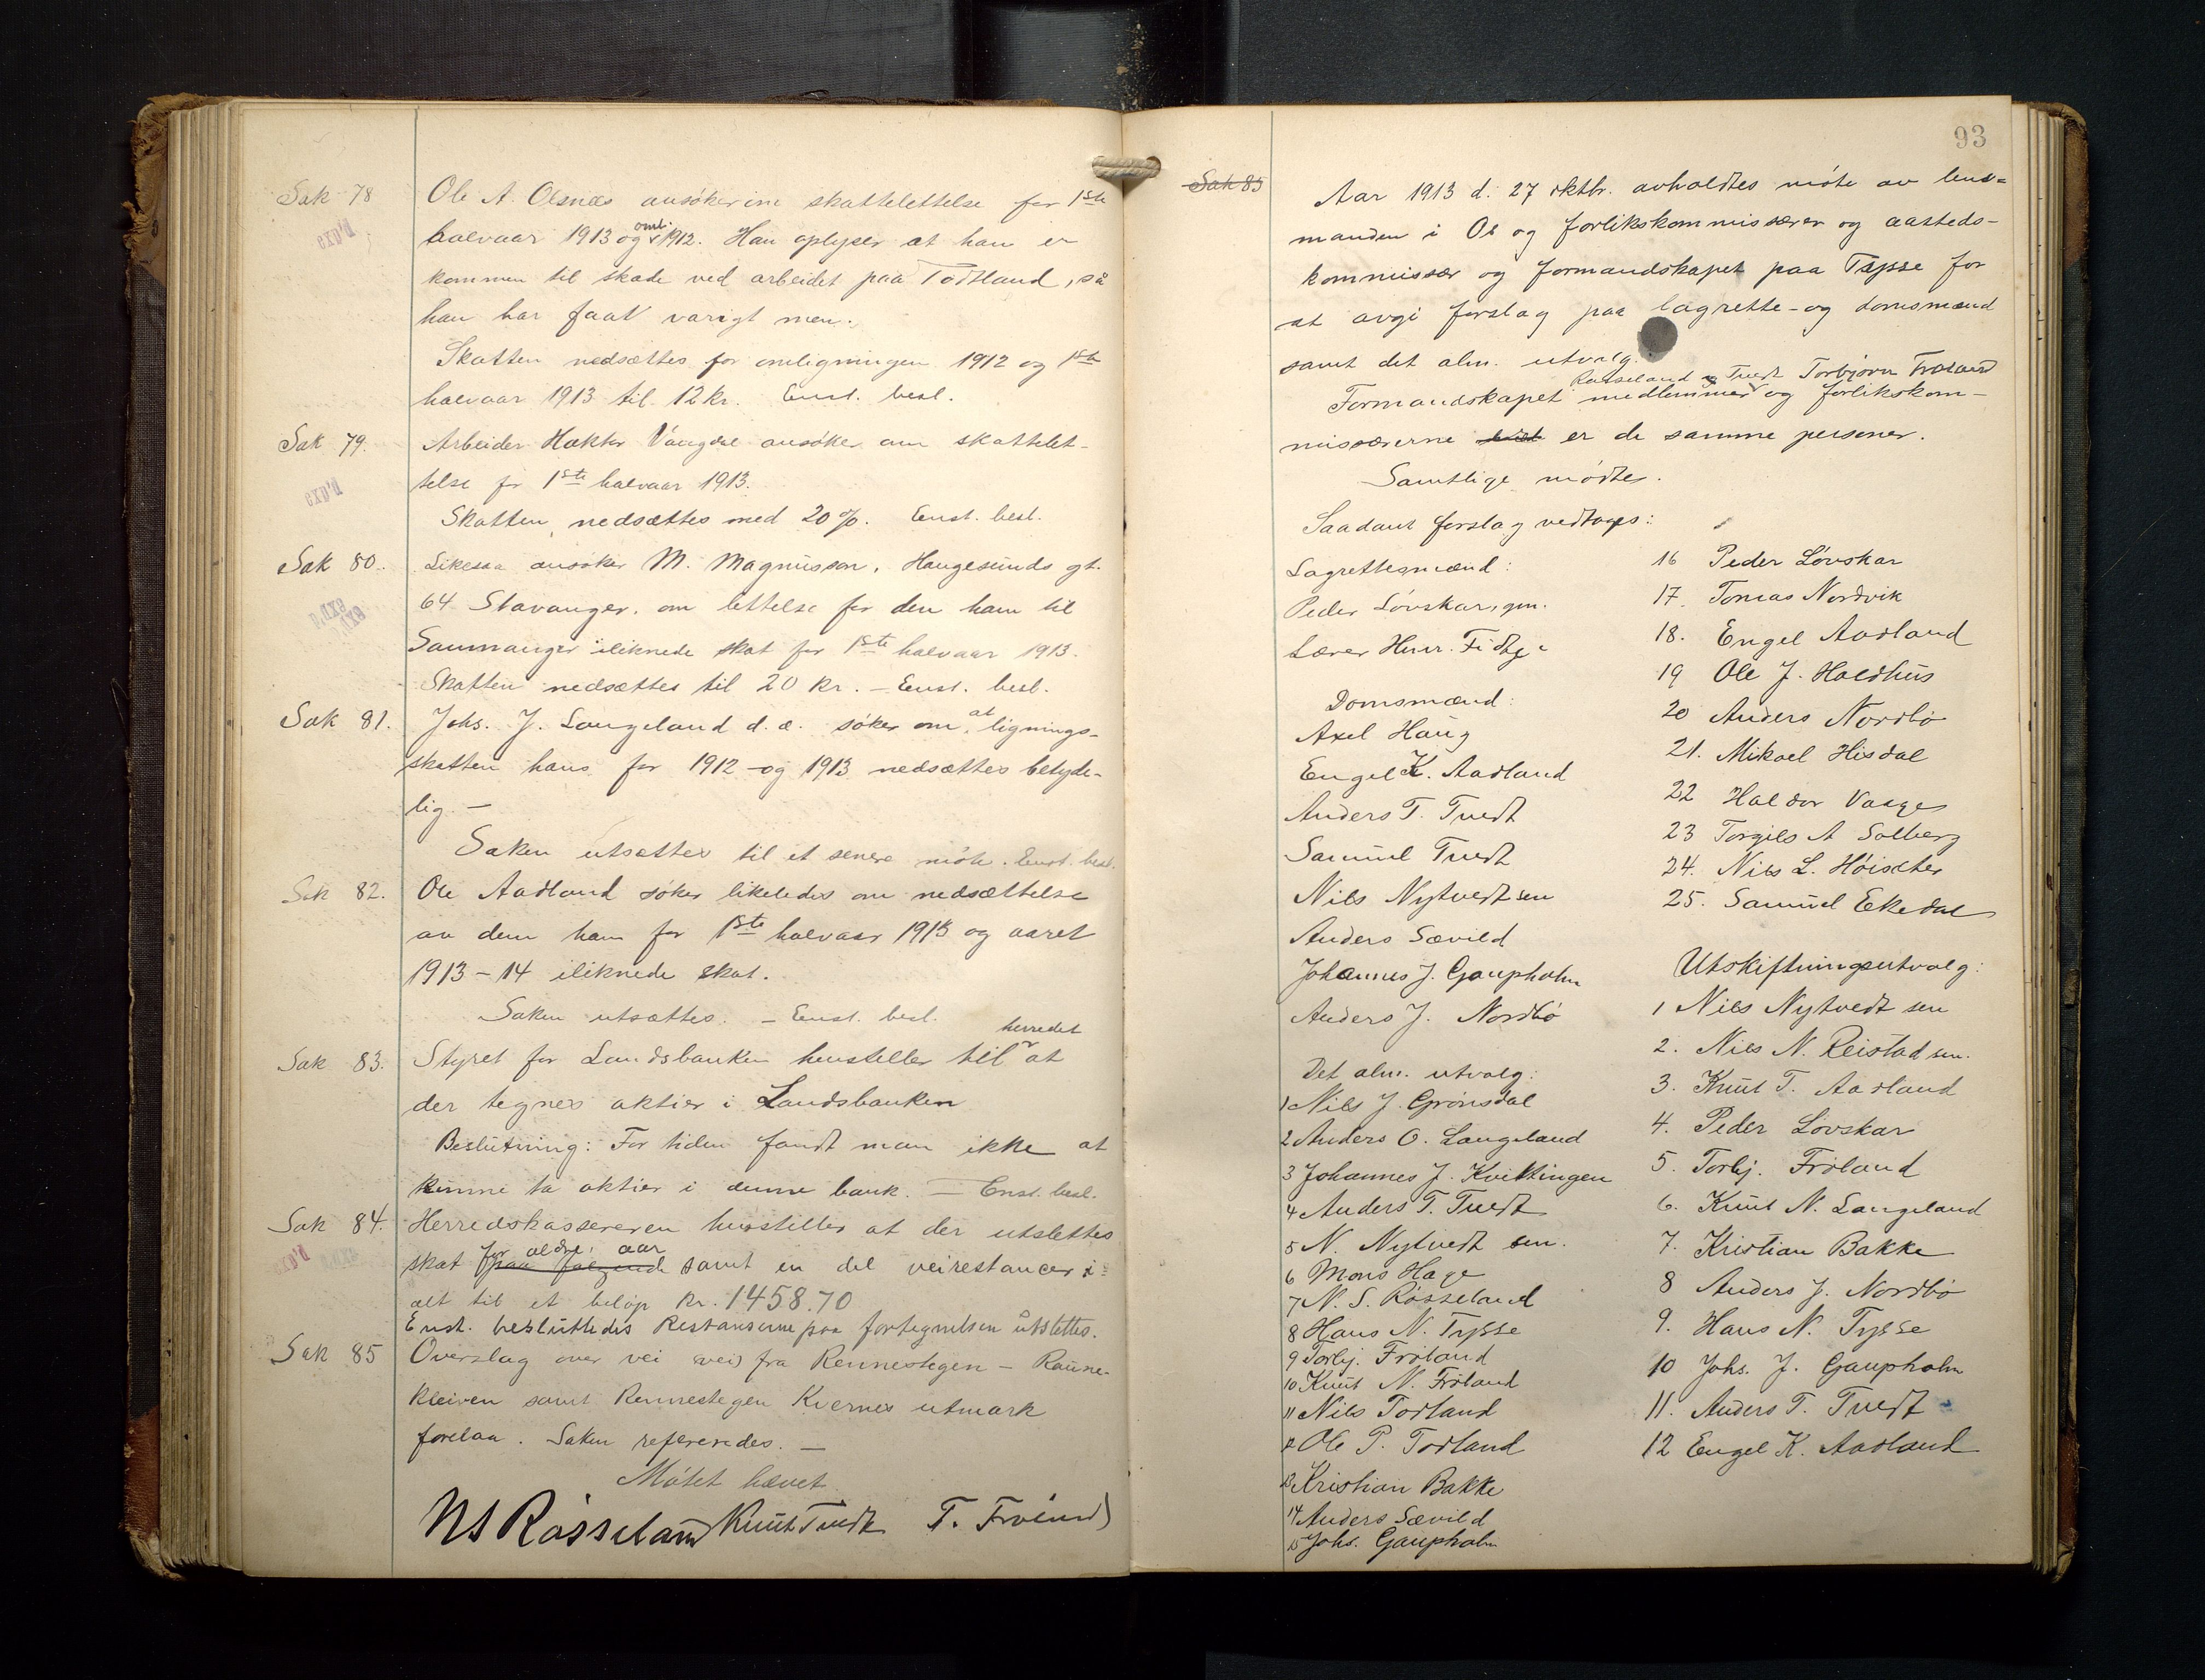 Sak 78
Ole A. Olsnæs ansöker om skattelettelse for 1ste
halvaar 1913 og oml. 1912. Han oplyser at han er
kommen til skade ved arbeidet paa Todtland, så
han har faat varigt men.
Skatten nedsættes for omligningen 1912 og 1ste
halvaar 1913 til 12 kr. Enst. besl.
exp'd
Sak 79.
Arbeider Vangdal ansöker om skattelet-
telse for 1ste halvaar 1913.
Skatten nedsættes med 20%. Enst. besl.
exp'd
Sak 80.
Likesaa ansöker M. Magnusson, Haugesunds gt.
64 Stavanger, om lettelse for den ham til
Sammanger iliknede skat for 1ste halvaar 1913.
Skatten nedsættes til 20 kr. – Enst. besl.
exp.d
exp.d
Sak 81.
Johs. J. Langeland d.æ. söker om at lignings-
skatten hans for 1912 og 1913 nedsættes betyde-
lig. –
Saken utsættes til et senere möte. Enst. besl.
Sak 82.
Ole Aadland söker likeledes om nedsættelse
av den ham for 1ste halvaar 1913 og aaret
1913–14 iliknede skat.
Saken utsættes. – Enst. besl.
Sak 83.
Styret for Landsbanken henstiller til herredet at
der tegnes aktier i Landsbanken
Beslutning: For tiden fandt man ikke at
kunne ta aktier i denne bank. – Enst. besl.
Sak 84.
Herredskassereren henstiller at der utslettes
skat for ældre aar samt en del veirestancer i
alt til et belöp kr. 1458.70
Enst. besluttedes Restanserne paa fortegnelsen utslettes.
exp'd
exp'd
Sak 85
Overslag over vei fra Rennestegen – Raune-
kleiven samt Rennestegen Kvernes utmark
forelaa. Saken refereredes. –
Mötet hævet.
NS Rösseland Knut Tvedt T. Fröland
93
Sak 85
Aar 1913 d. 27 oktbr. avholdtes möte av lens=
manden i Os og forlikskommissærer og aasteds-
kommissær og formandskapet paa Tysse for
at avgi forslag paa lagrette- og domsmænd
samt det alm. utvalg.
Rösseland og Tvedt Torbjörn Fröland
Formandskapet medlemmer og forlikskom-
missærerne er de samme personer.
Samtlige mödte.
Saadant forslag vedtoges:
Lagrettesmænd:
Peder Lövskar, gm.
Lærer Herm.
Domsmænd:
Axel Haug
Engel K. Aadland
Anders T. Tvedt
Samuel Tvedt
Nils Nytvedt sen
Anders Sævild
Johannes J. Gaupholm
Anders J. Nordbö
Det alm. utvalg:
1 Nils J. Grönsdal
2 Anders O. Langeland
3 Johannes J. Kvittingen
4 Anders T. Tvedt
5 N. Nytvedt sen.
6 Mons Hage
7 N. S. Rösseland
8 Hans N. Tysse
9 Torbj. Fröland
10 Knut N. Fröland
11 Nils Todland
12 Ole P. Todland
13 Kristian Bakke
14 Anders Sævild
15 Johs. Gaupholm
16 Peder Lövskar
17. Tomas Nordvik
18. Engel Aadland
19 Ole J. Holdhus
20 Anders Nordbö
21. Mikael Hisdal
22 Haldor Vaage
23 Torgils A Solberg
24. Nils L. Höisæter
25. Samuel Eikedal
Utskiftningsutvalg:
1 Nils Nytvedt sen
2. Nils N. Reistad sen.
3. Knut T. Aadland
4. Peder Lövskar
5. Torbj. Fröland
6. Knut N. Langeland
7. Kristian Bakke
8 Anders J. Nordbö
9. Hans N. Tysse
10 Johs. J. Gaupholm
11. Anders T. Tvedt
12 Engel K. Aadland